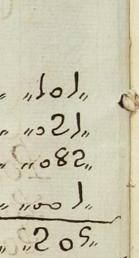 „ „101„
„ „021„
„ „082„
„ „001„
„ „205„